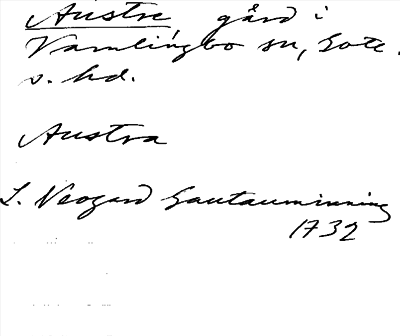 Austre gård i
Vamlingbo sn, Gotl.
s. hd.
Austra
L. Neogard Gautauminning
1732